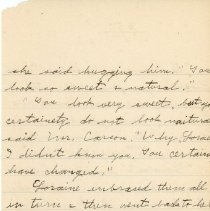 she said hugging him. "You
look so sweet & natural."
"You look very sweet, but you
certainely do not look naitural
said Mr. Carson. "Why Loraine
I didn't know you. You certainl
have changed."
Loraine embraced them all
in turn & then went back to he